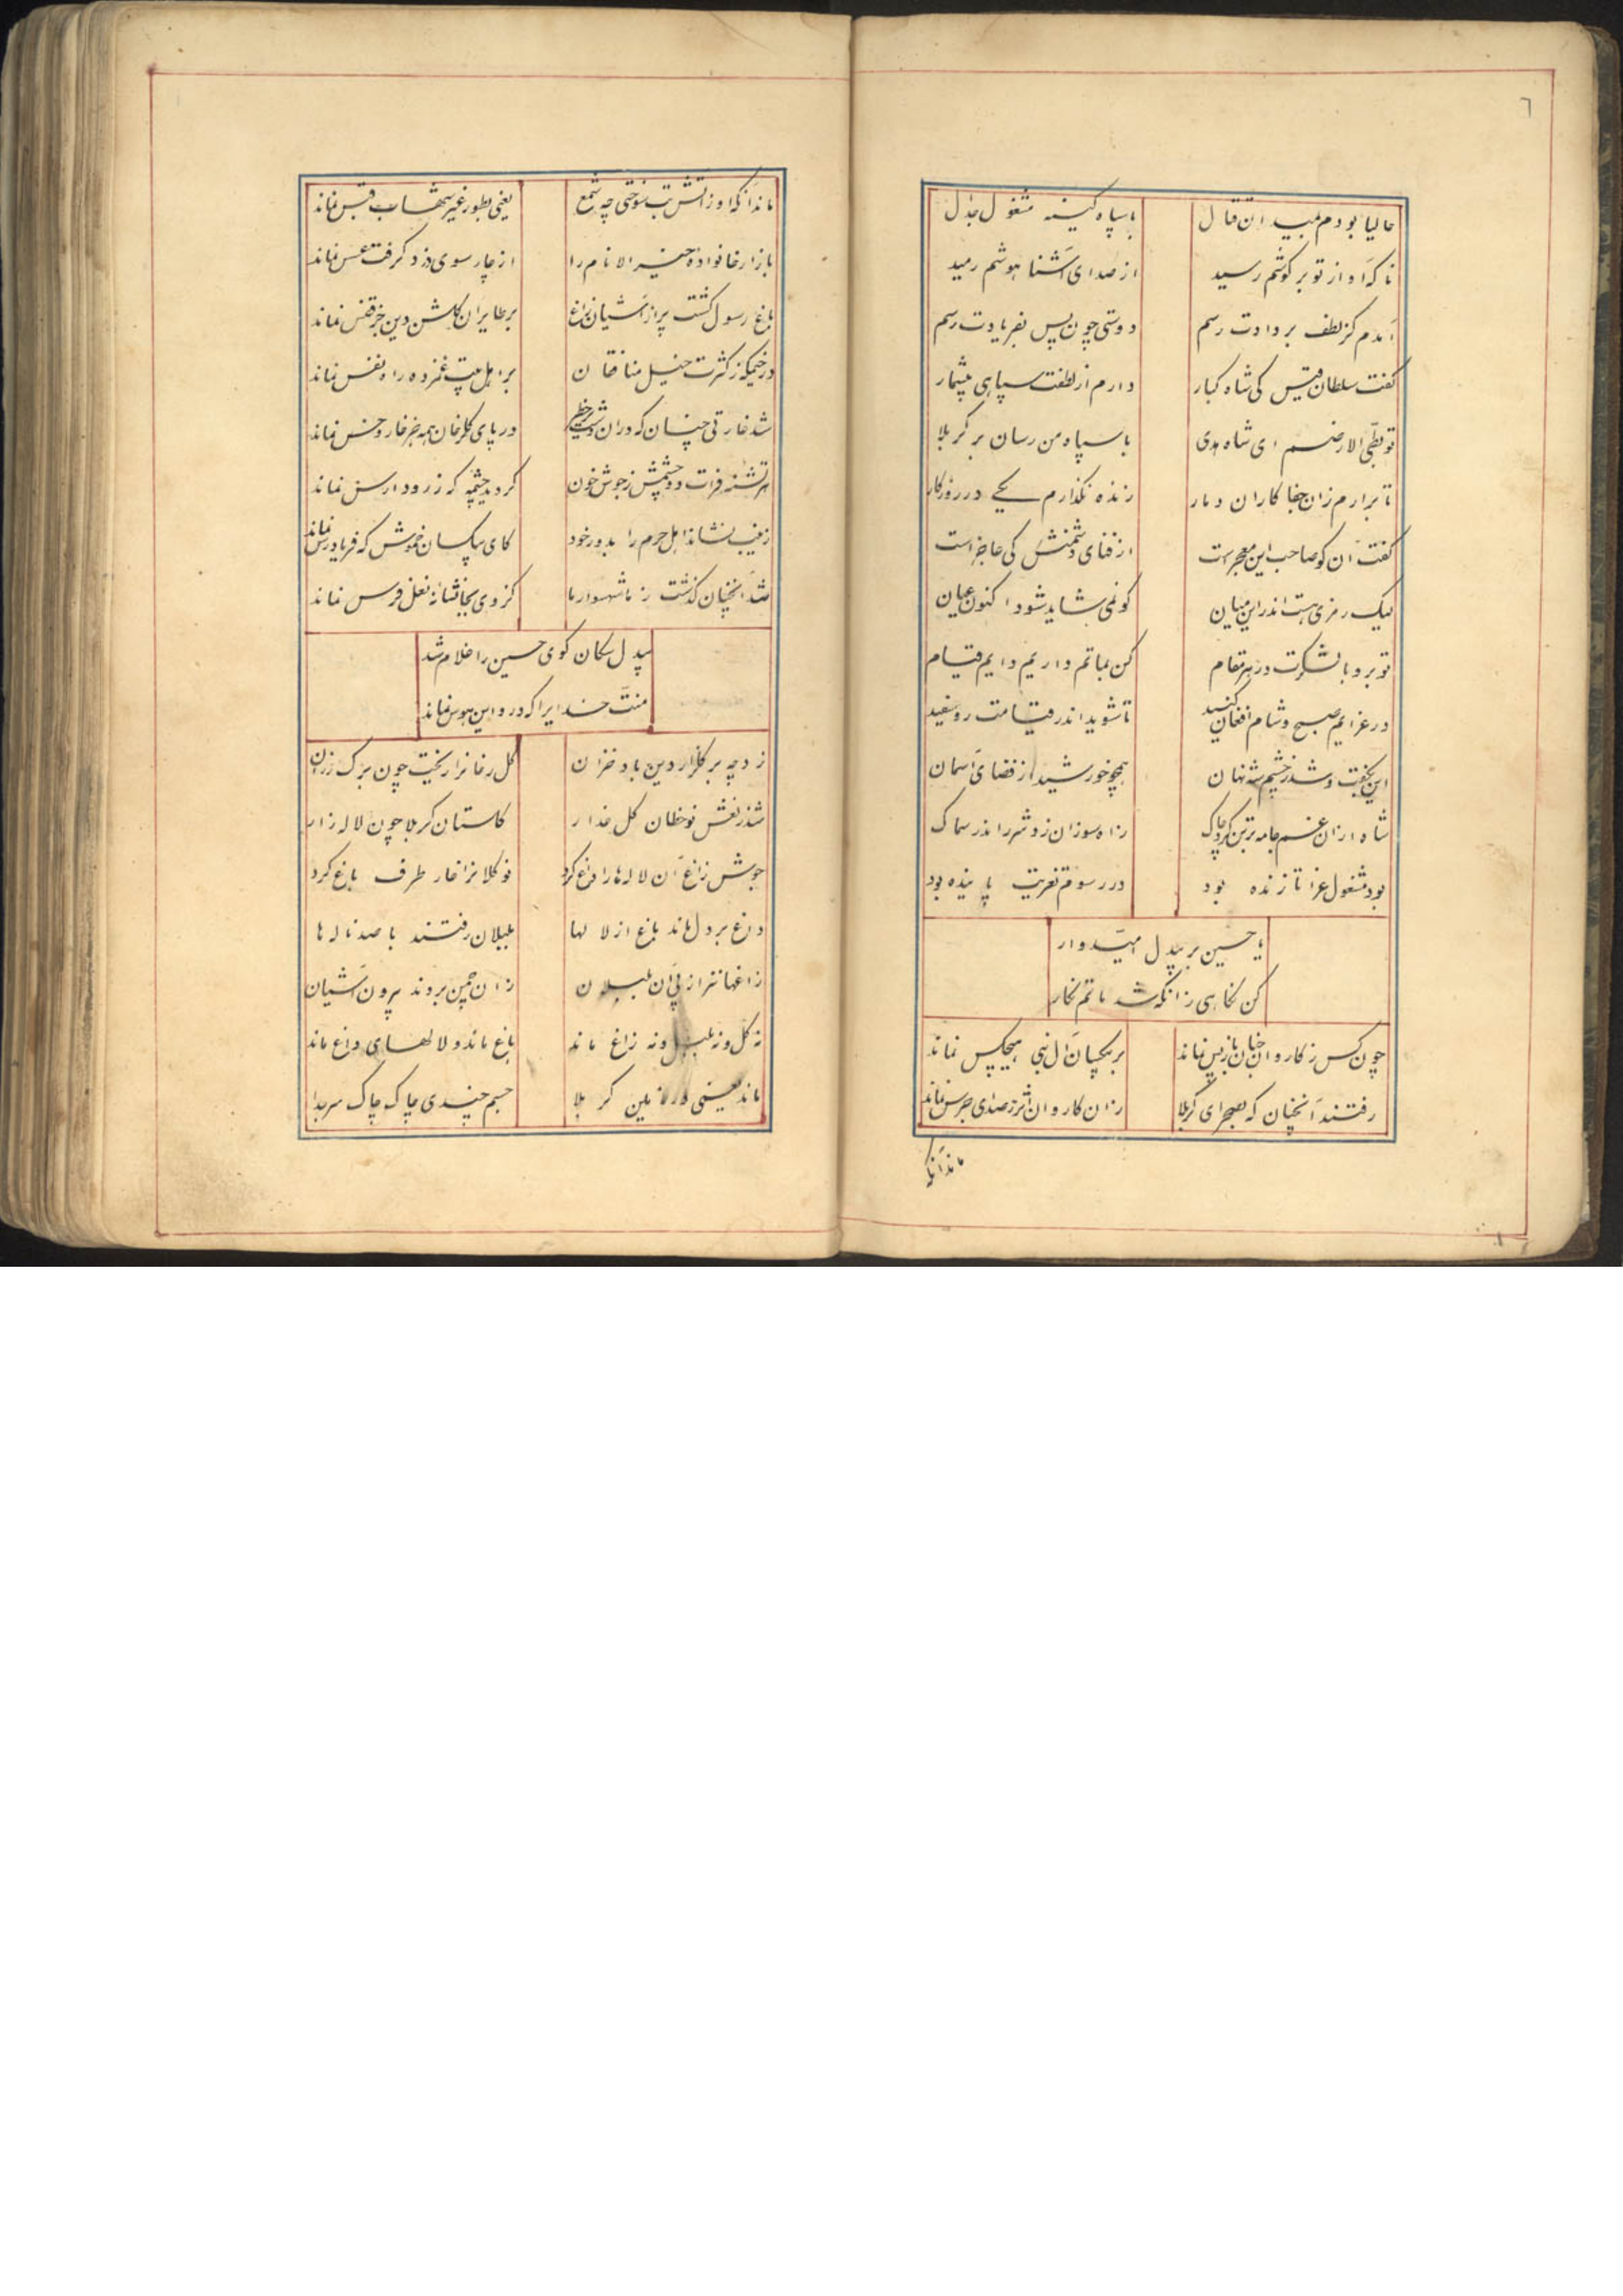 ٦
حالیا بودم بمیدان قتال با سپاه کینه مشغول جدال
ناکه آواز تو بر کوشم رسید از صدای آشنا هوشم رمید
آمدم کز لطف بر دادت رسم دوستی چون پس بفریادت رسم
کفت سلطان قیس کی شاه کبار دارم از لطفت سپاهی بیشمار
تو بطی الارضم ای شاه هدی با سپاه من رسان بر کربلا
تا برارم زان جفا کاران دمار زنده نکذارم یکی در روزکار
کفت آن کو صاحب این معجز است از فنای دشمنش کی عاجز است
لیک رمزی هست اندر این میان کو نمی شاید شود اکنون عیان
تو برو با لشکرت در هر مقام کن بماتم داریم دایم قیام
در عزایم صبح و شام افغان کنید تا شوید اندر قیامت رو سفید
این بکفت و شد ز چشم شه نهان همچو خورشید از فضای آسمان
شاه از ان غم جامه بر تن کرد چاک ز آه سوزان زد شرر اندر سماک
بود مشغول عزا تا زنده بود در رسوم تعزیت پاینده بود
یا حسین بر بیدل امیدوار
کن نکاهی زانکه شد ماتم نکار
چون کس ز کاروان جنان باز پس نماند بر بیکسان آل نبی هیچکس نماند
رفتند آنچنان که بصحرای کربلا زان کاروان اثر ز صدای جرس نماند
ماند آنکه
ماند آنکه او ز آتش تب سوختی چه شمع یعنی بطور غیر شهاب قبس نماند
بازار خانواده خیر الانام را از چارسوی دزد کرفت عسس نماند
باغ رسول کشت پر از آشیان زاغ بر طایران کلشن دین جز قفس نماند
در خیمکه ز کثرت خیل منافقان بر اهل بیت غمزده راه نفس نماند
شد غارتی چنان که در ان دشت در پای کلرخان همه جز خار و خس نماند
لب تشنه فرات دو چشمش ز جوش خون کردید چشمه که ز رود ارس نماند
زینب نشاند اهل حرم را بدور خود کای بیکسان خموش که فریادرس نماند
شد آنچنان کذشت ز ما شهسوار ما کز وی بجا نشانه نعل فرس نماند
بیدل سکان کوی حسین را غلام شد
منت خدایرا که در و این هوس نماند
زد چه بر کلزار دین باد خزان کل رخانرا ریخت چون برک رزان
شد ز نعش نوخطان کل عذار کلستان کربلا چون لاله زار
جوش زاغ آن لاله ها را داغ کرد نو کلانرا خار طرف باغ کرد
داغ بر دل ماند باغ از لالها بلبلان رفتند با صد ناله ها
زاغها نیز از پی آن بلبلان زان چمن بردند بیرون آشیان
نه کل و نه بلبل و نه زاغ ماند باغ ماند و لالهای داغ ماند
ماند یعنی در زمین کربلا جسم چندی چاک چاک سر جدا